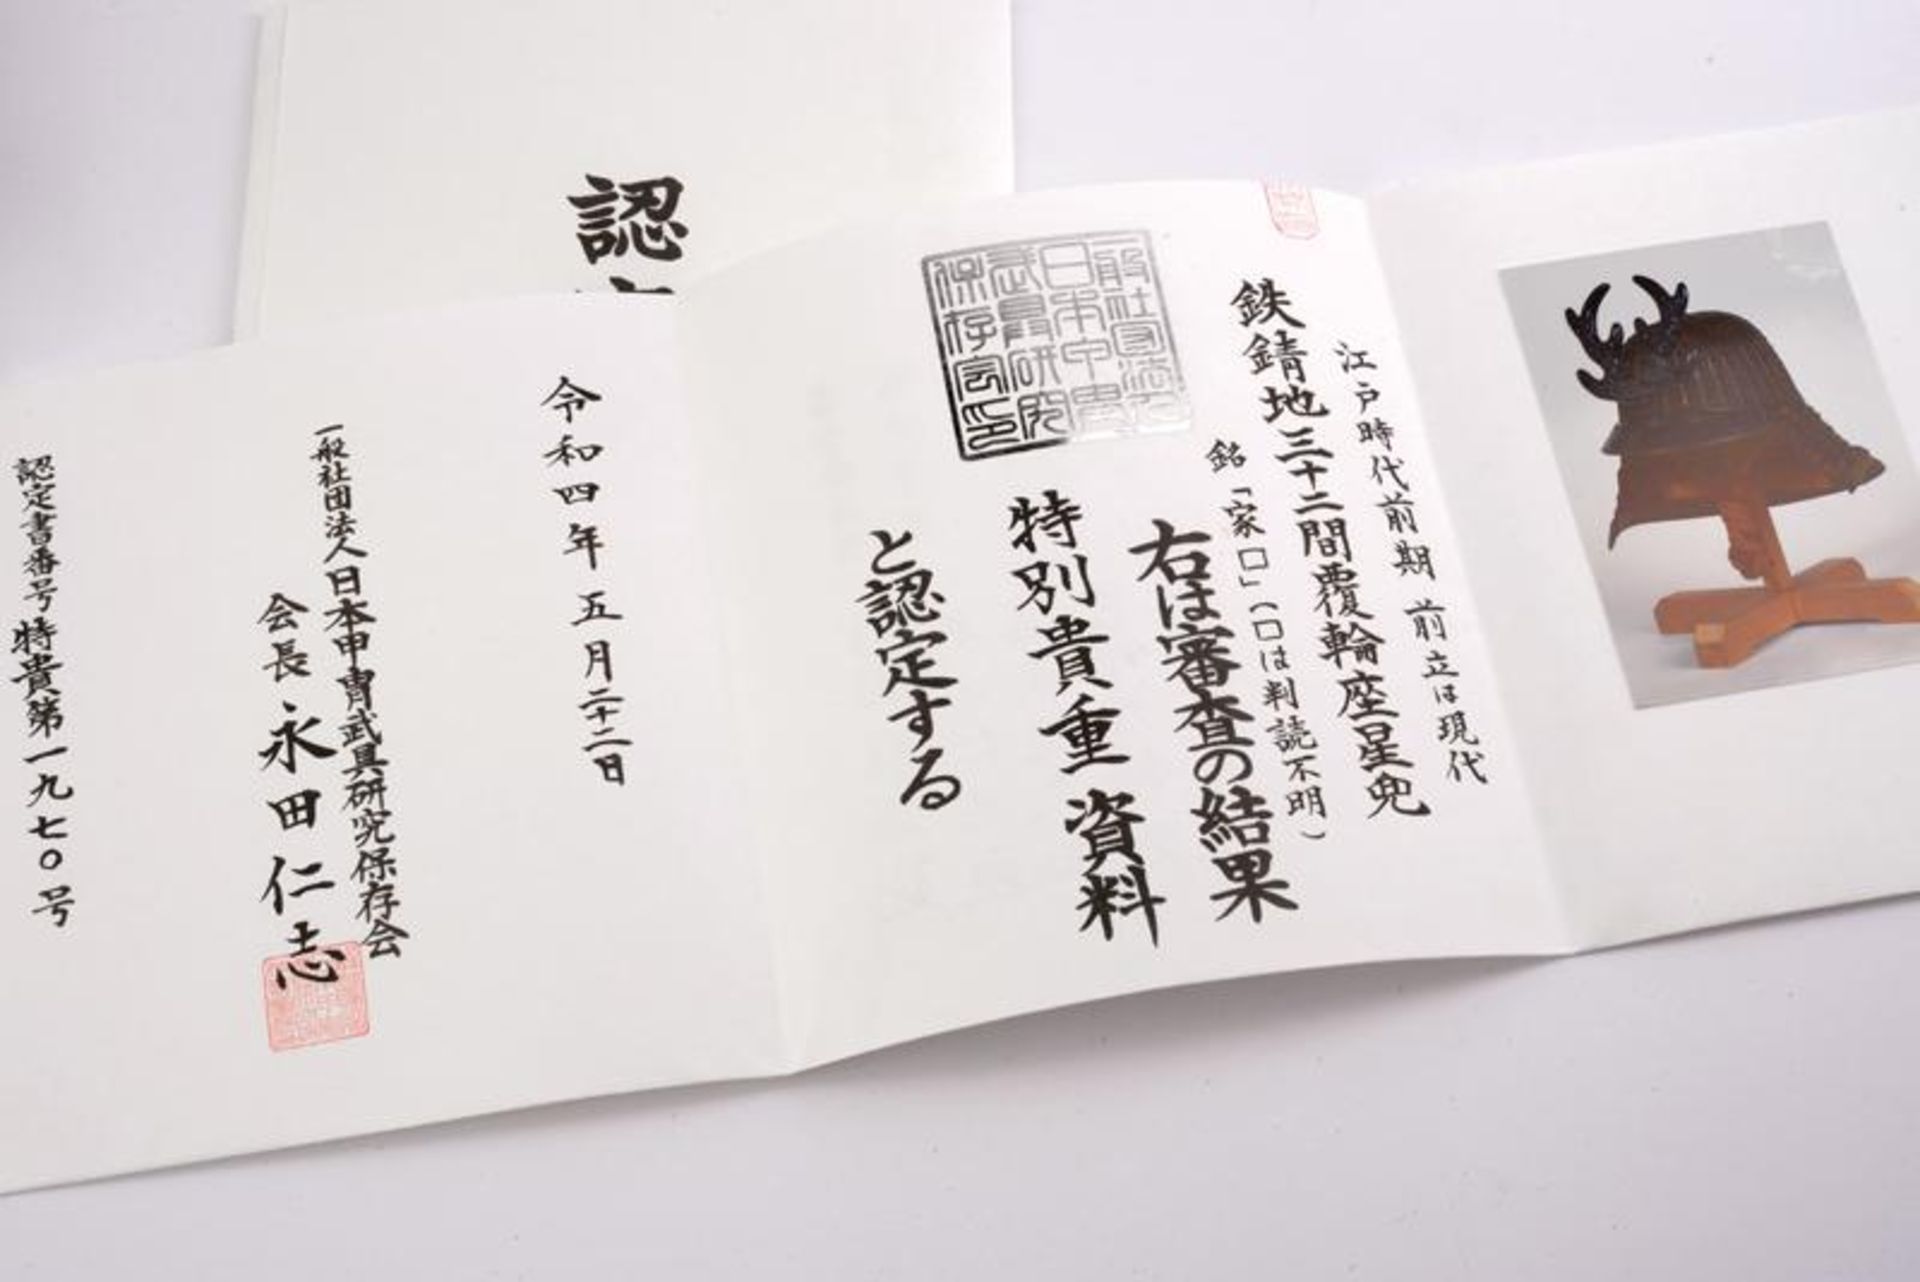 認
鉄錆地三十二間覆輪座星兜
江戸時代前期 前立は現代
銘「家□」(□は判読不明)
右は審査の結果
特別貴重資料
と認定する
一般社団法人
日本甲冑
武具研究
保存会印
令和四年五月二十二日
一般社団法人日本甲冑武具研究保存会
会長 永田仁志
認定書番号特貴第一九七〇号